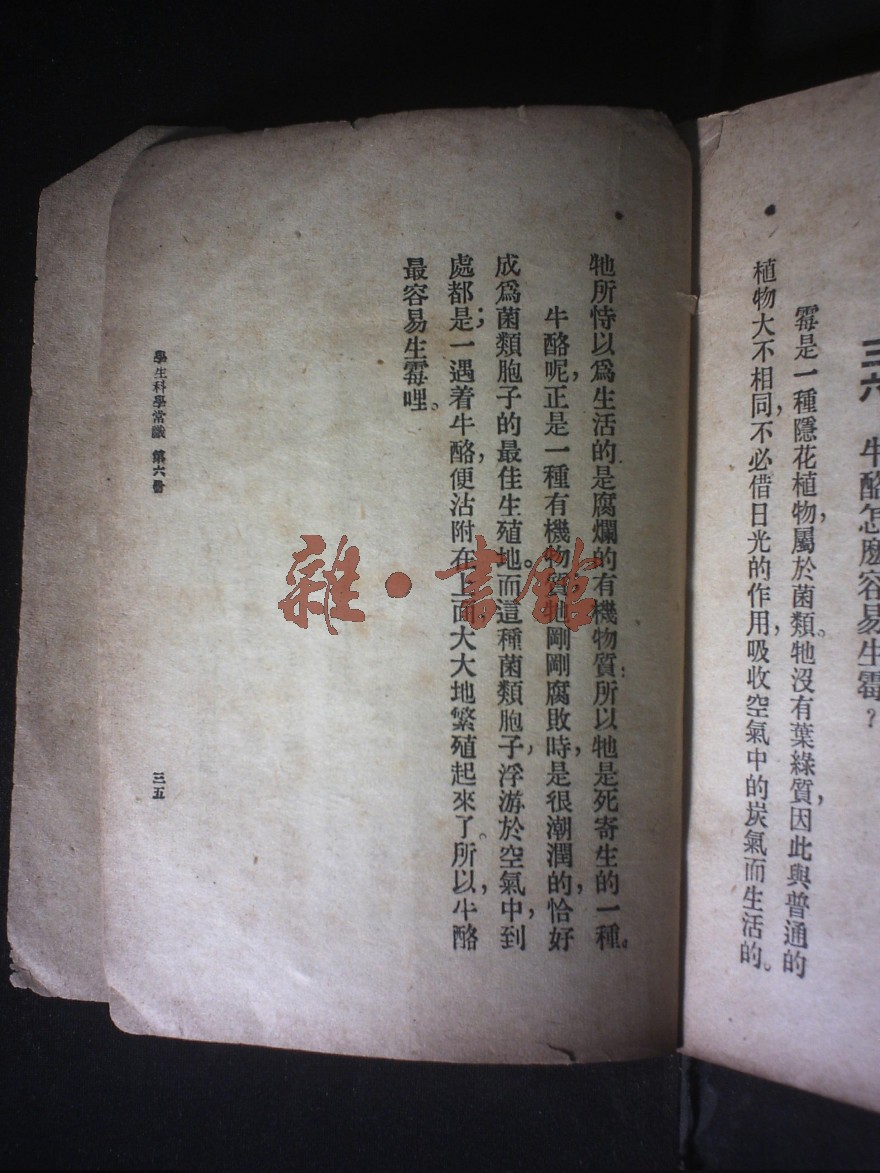 三六　牛酪怎麼容易生霉？
霉是一種隱花植物，屬於菌類。牠沒有葉綠質，因此與普通的
植物大不相同，不必借日光的作用，吸收空氣中的炭氣而生活的。
牠所恃以爲生活的是腐爛的有機物質：所以牠是死寄生的一種。
牛酪呢，正是一種有機物質，牠剛剛腐敗時，是很潮潤的，恰好
成爲菌類胞子的最佳生殖地。而這種菌類胞子，浮游於空氣中，到
處都是；一遇着牛酪，便沾附在上面，大大地繁殖起來了。所以，牛酪
最容易生霉哩。
學生科學常識　第六冊
三五
雜·書館